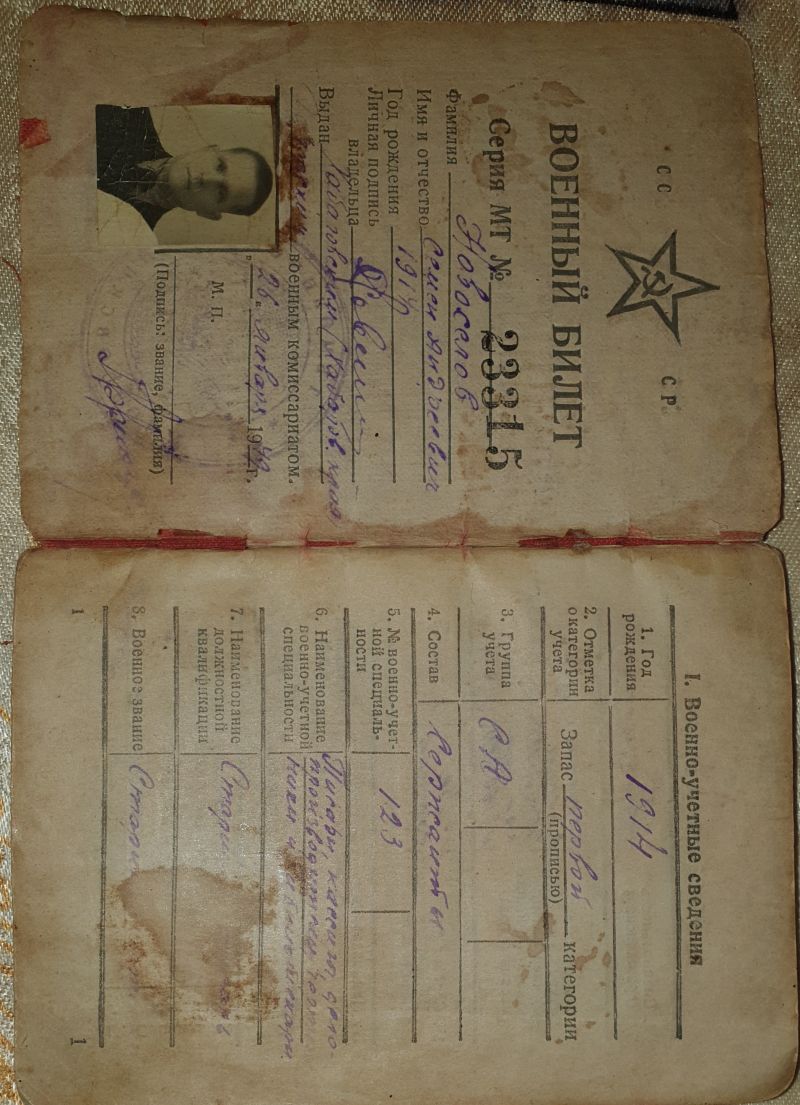 СССР
ВОЕННЫЙ БИЛЕТ
Серия МТ № 23315
Фамилия Новоселов
Имя и отчество Семен Андреевич
Год рождения 1914
Личная подпись
владельца
Выдан Хабаровским Хабаров. края
военным комиссариатом.
„26“ Января 19 г.
М. П.
(Подпись: звание, фамилия)
I. Военно-учетные сведения
1. Год рождения 1914
2. Отметка о категории учета Запас первой категории
(прописью)
3. Группа учета СА
4. Состав Сержанты
5. № военно-учет-
ной специаль-
ности 123
6. Наименование военно-учетной специальности Писари, кассиры, дело-
производители,
и библиотекари
7. Наименование
должностной
квалификации
8. Военное звание
1 1